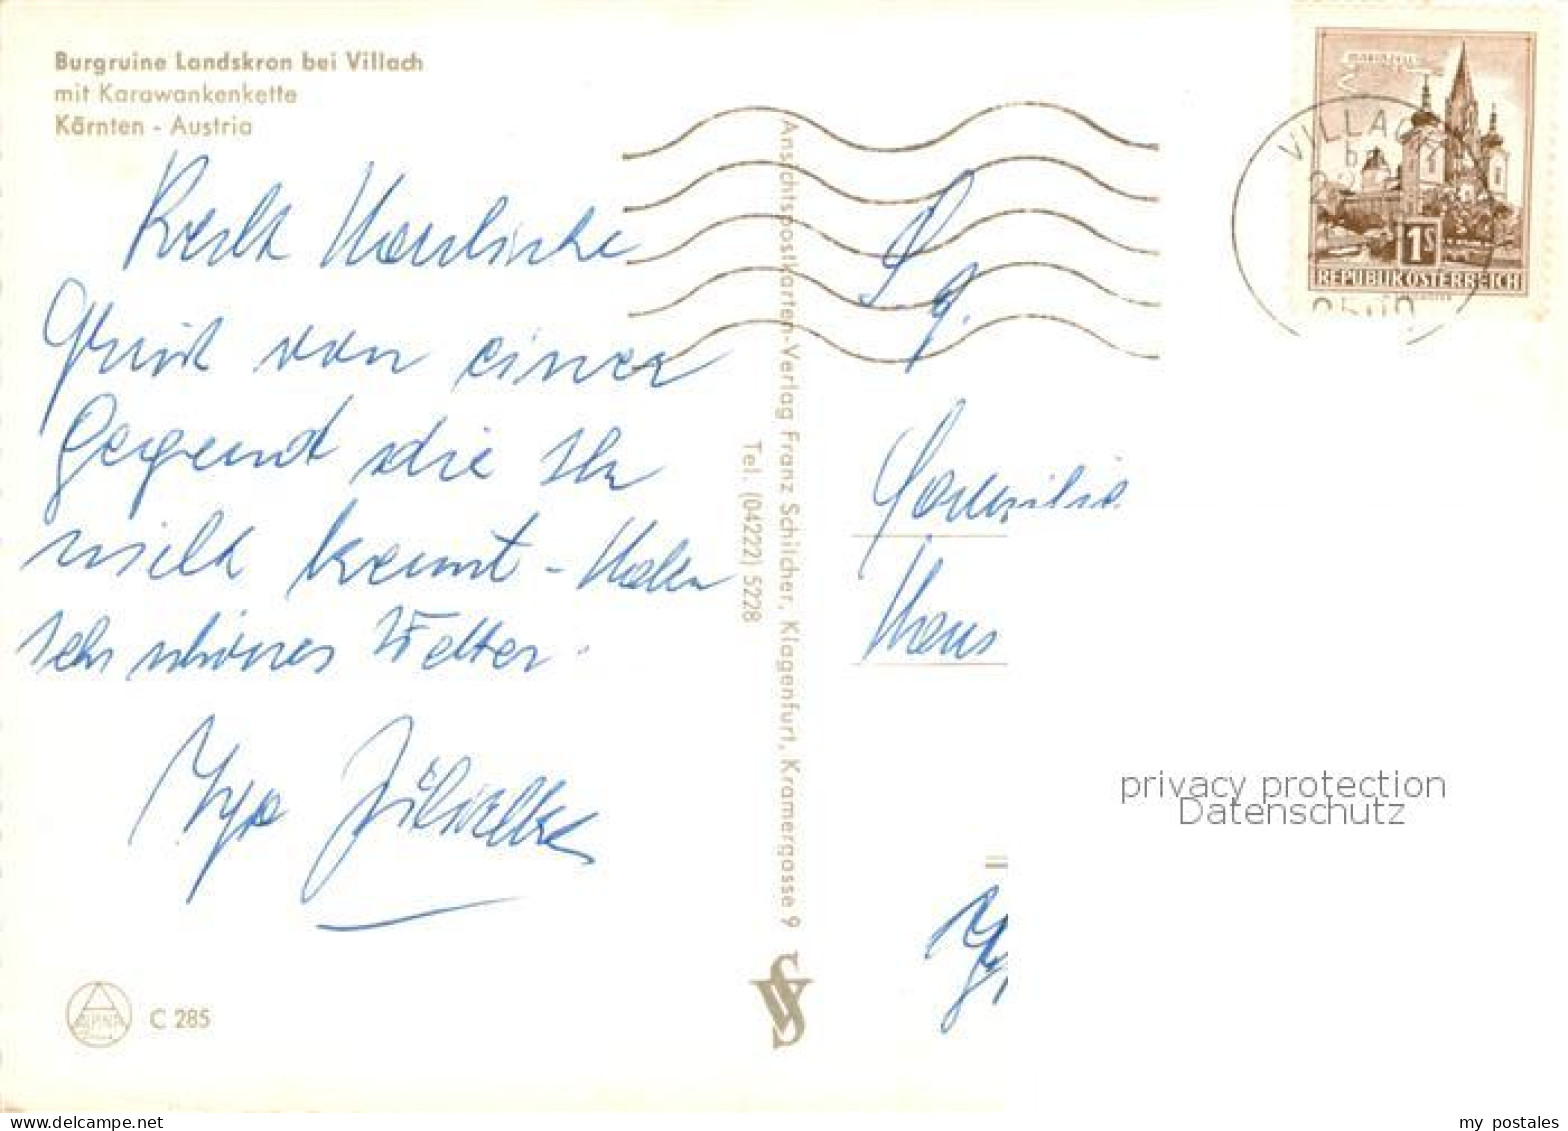 Burgruine Landskron bei Villach
mit Karawankenkette
Kärnten - Austria
Recht Herzliche
Gruß von einer
Gegend die Ihr
nicht kennt - Haben
sehr schönes Wetter.
C 285
Ansichtspostkarten-Verlag Franz Schilcher, Klagenfurt, Kramergasse 9
Tel. (04222) 5228
Familie
MARIAZELL
1S
REPUBLIK ÖSTERREICH
VILLACH
privacy protection
Datenschutz
www.delcampe.net
my_postales